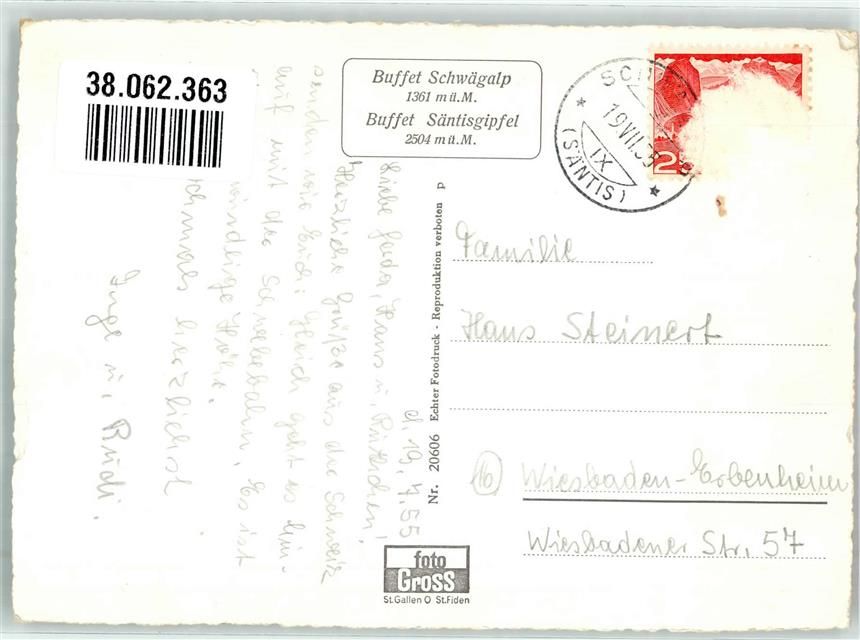 38.062.363
Buffet Schwägalp
1361 m ü.M.
Buffet Säntisgipfel
2504 m ü.M.
(SÄNTIS)
IX
19 VII.55
2
d. 19.7.55
Liebe Gerda, Hans u.
Herzliche Grüße aus der Schweiz
senden wir Euch. Gleich geht es hin-
auf mit der Schwebebahn. Es ist
windige Höhe.
herzlichst
Inge u. Rudi.
Nr. 20606 Echter Fotodruck - Reproduktion verboten p
Familie
Hans Steinert
(16) Wiesbaden-Erbenheim
Wiesbadener Str. 57
foto
Gross
St.Gallen O St.Fiden